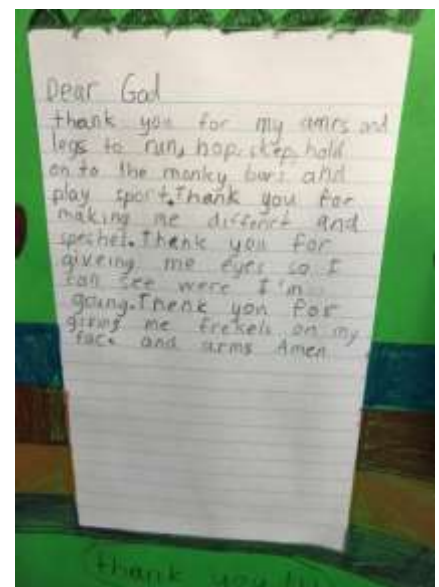 Dear God
thank you for my amrs and
legs to run, hop, skep, hold
on to the monky bars and
play sport. Thank you for
making me diffenct and
speshel. Thenk you for
giveing me eyes so I
can see were I'm
going. Thenk you for
giving me frekels on my
face and arms Amen
thank you